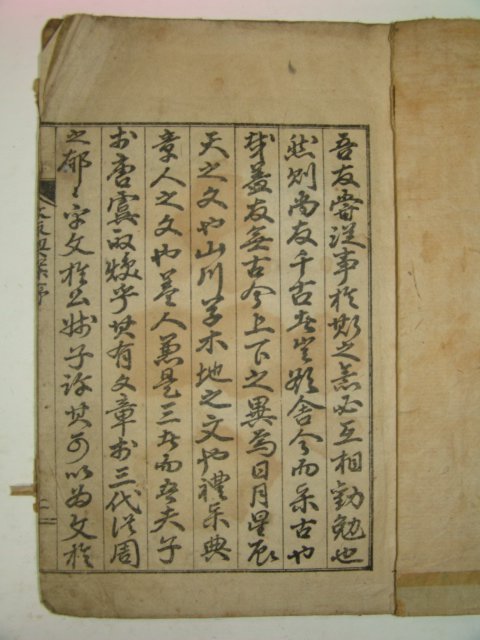 吾友嘗從事於斯之意必互相勸勉也
然則尚友千古者豈欲舍今而求古也
哉蓋友無古今上下之異焉日月星辰
天之文也山川草木地之文也禮樂典
章人之文也蓋人兼是三者而吾夫子
於唐虞而煥乎其有文章於三代從周
之郁〻乎文於公叔子許其可以為文於
序
二